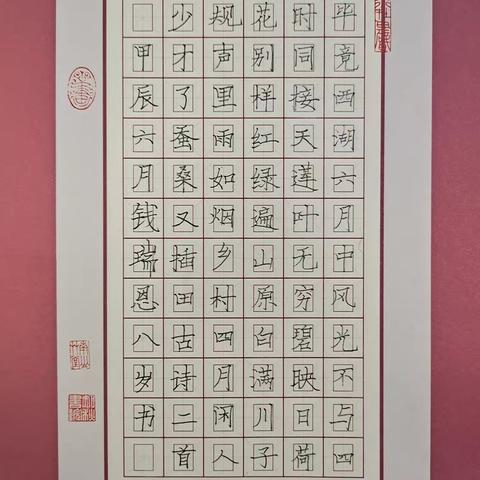 毕竟西湖六月中风光不与四
时同接天莲叶无穷碧映日荷
花别样红绿遍山原白满川子
规声里雨如烟乡村四月闲人
少才了蚕桑又插田古诗二首
甲辰六月钱瑞恩八岁书